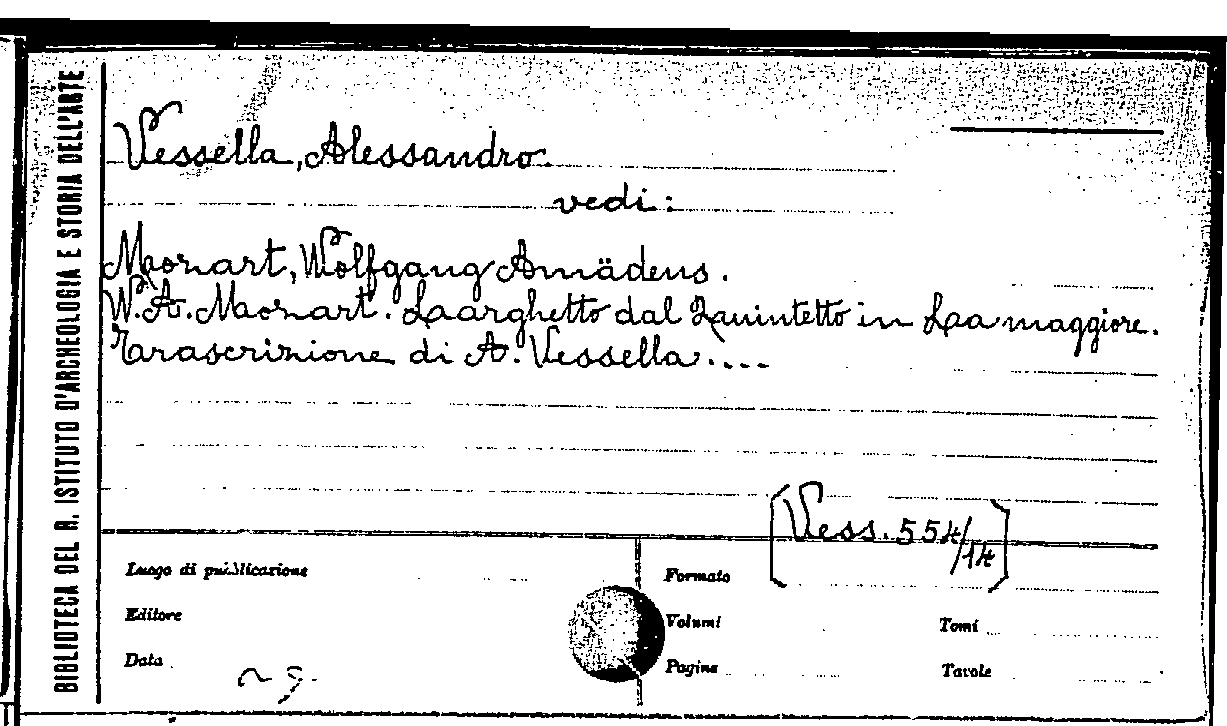 BIBLIOTECA DEL R. ISTITUTO D'ARCHEOLOGIA E STORIA DELL'ARTE
Vessella, Alessandro.
vedi:
Mozart, Wolfgang Amädeus.
W. A. Mozart. Larghetto dal Quintetto in La maggiore.
Trascrizione di A. Vessella....
[Vess. 554/14]
Luogo di pubblicazione
Formato
Editore
Volumi
Tomi
Data
Pagine
Tavole